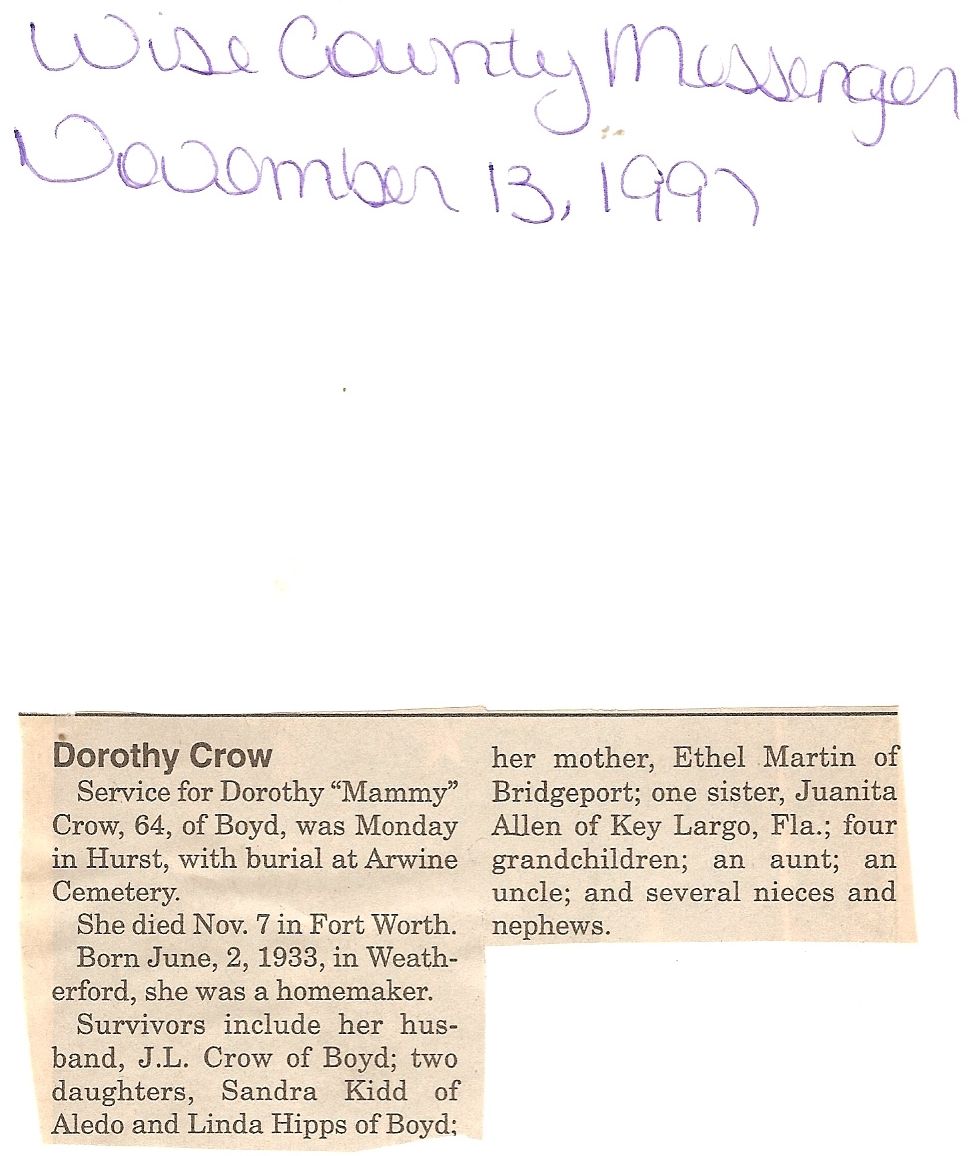 Wise County Messenger
November 13, 1997
Dorothy Crow
Service for Dorothy “Mammy”
Crow, 64, of Boyd, was Monday
in Hurst, with burial at Arwine
Cemetery.
She died Nov. 7 in Fort Worth.
Born June, 2, 1933, in Weath-
erford, she was a homemaker.
Survivors include her hus-
band, J.L. Crow of Boyd; two
daughters, Sandra Kidd of
Aledo and Linda Hipps of Boyd;
her mother, Ethel Martin of
Bridgeport; one sister, Juanita
Allen of Key Largo, Fla.; four
grandchildren; an aunt; an
uncle; and several nieces and
nephews.